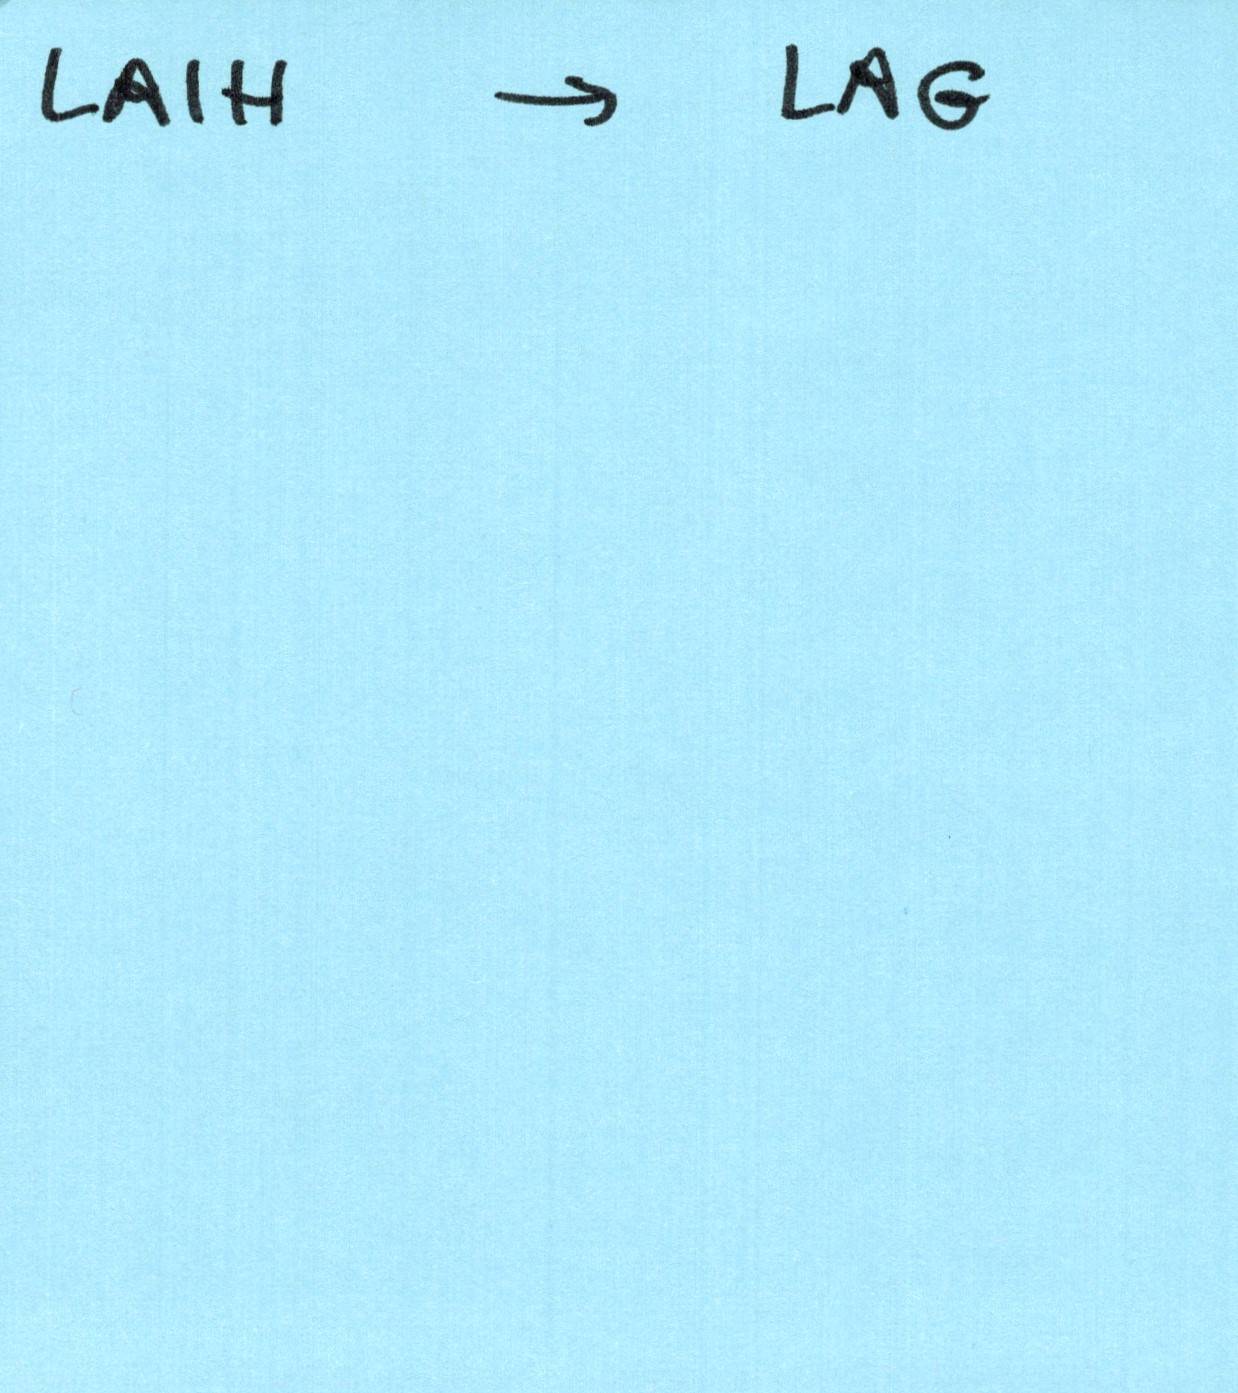 LAIH → LAG